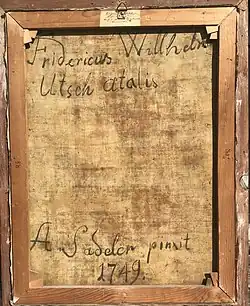 Fridericus Willhelm
Utsch ætatis
A Sadeler pinxit
1749.